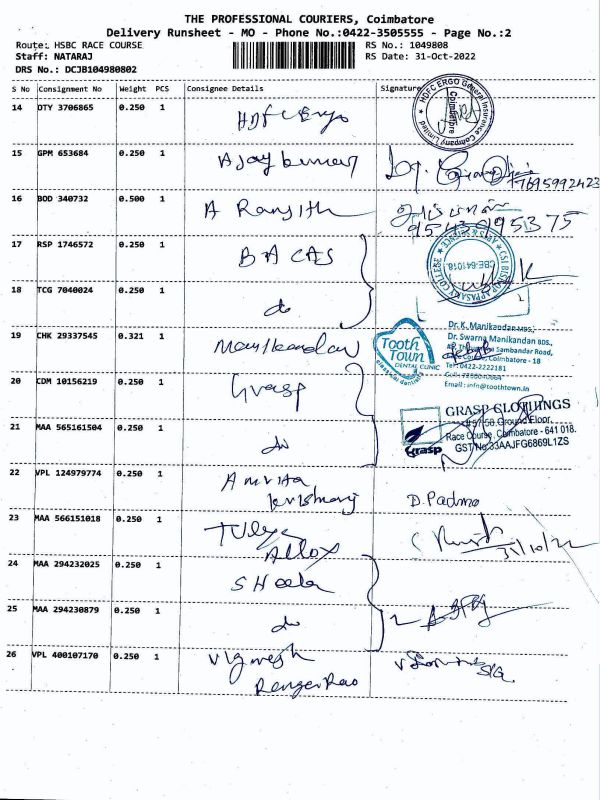 THE PROFESSIONAL COURIERS, Coimbatore
Delivery Runsheet - MO - Phone No.:0422-3505555 - Page No.:2
Route: HSBC RACE COURSE
RS No.: 1049808
Staff: NATARAJ
RS Date: 31-Oct-2022
DRS No.: DCJB104980802
S No Consignment No Weight PCS Consignee Details Signature
14 DTY 3706865 0.250 1 HDFC Ergo
HDFC ERGO General Insurance Company Limited
Coimbatore
15 GPM 653684 0.250 1 Ajay kumar
7695992423
16 BOD 340732 0.500 1 A Ranjith
9543995375
17 RSP 1746572 0.250 1 BACAS
CSI BISHAP APPASAMY COLLEGE
CBE-641018.
18 TCG 7040024 0.250 1 do
19 CHK 29337545 0.321 1 Manikandan
Tooth
Town
DENTAL CLINIC
Dr. K. Manikandan MDS.,
Dr. Swarna Manikandan BDS.,
Sambandar Road,
Coimbatore - 18
Tel: 0422-2222181
Email: info@toothtown.in
20 CDM 10156219 0.250 1 Grasp
GRASP CLOTHINGS
Ground Floor,
Race Course, Coimbatore - 641 018.
GST No:33AAJFG6869L1ZS
Grasp
21 MAA 565161504 0.250 1 do
22 VPL 124979774 0.250 1 Amrita
D. Padma
23 MAA 566151018 0.250 1
Alloy
31/10/22
24 MAA 294232025 0.250 1 SHeela
25 MAA 294230879 0.250 1 do
26 VPL 400107170 0.250 1 Vignesh
Rangarao